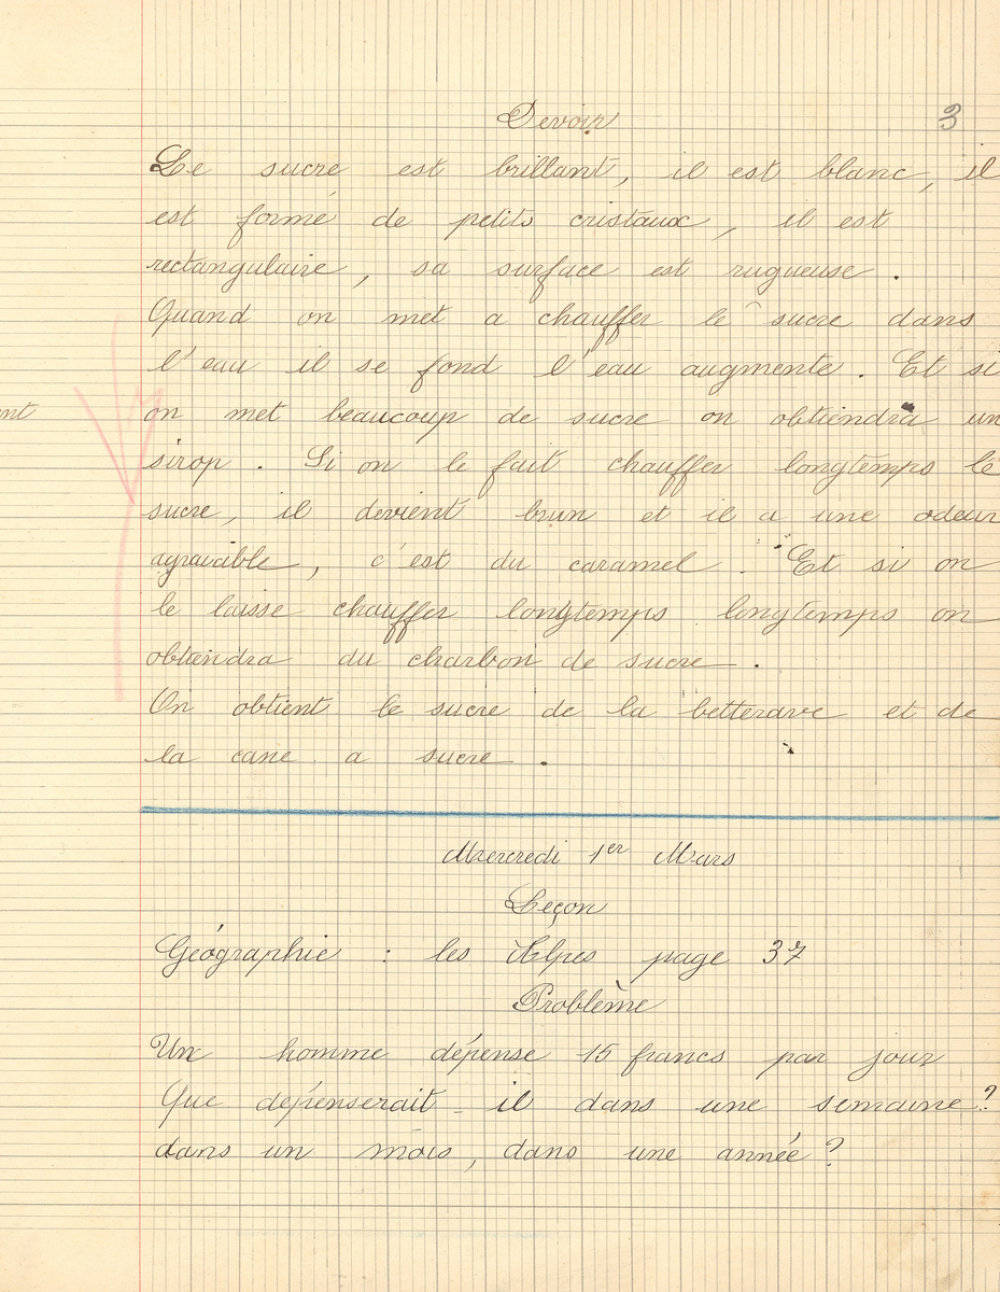 Devoir
3
Le sucre est brillant, il est blanc, il
est formé de petits cristaux, il est
rectangulaire, sa surface est rugueuse.
Quand on met a chauffer le sucre dans
l'eau il se fond l'eau augmente. Et si
on met beaucoup de sucre on obtiendra un
sirop. Si on le fait chauffer longtemps le
sucre, il devient brun et il a une odeur
agraiable, c'est du caramel. Et si on
le laisse chauffer longtemps longtemps on
obtiendra du charbon de sucre.
On obtient le sucre de la betterave et de
la cane a sucre.
Mercredi 1er Mars
Leçon
Géographie : les Alpes page 37
Problème
Un homme dépense 15 francs par jour
Que dépenserait-il dans une semaine?
dans un mois, dans une année?